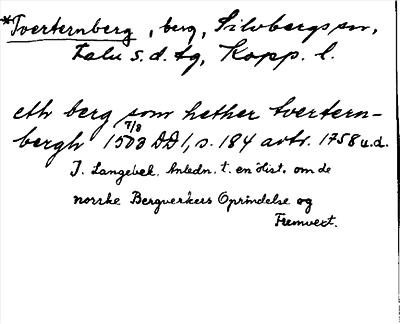 *Tverternberg, berg, Silvbergs sn,
Falu s. d. tg, Kopp. l.
eth berg som hether tvertern-
7/8
bergh 1503 DD1, s. 184 avtr. 1758 u.d.
J. Langebek. Anledn. t. en Hist. om de
norske Bergverkers Oprindelse og
Fremvext.